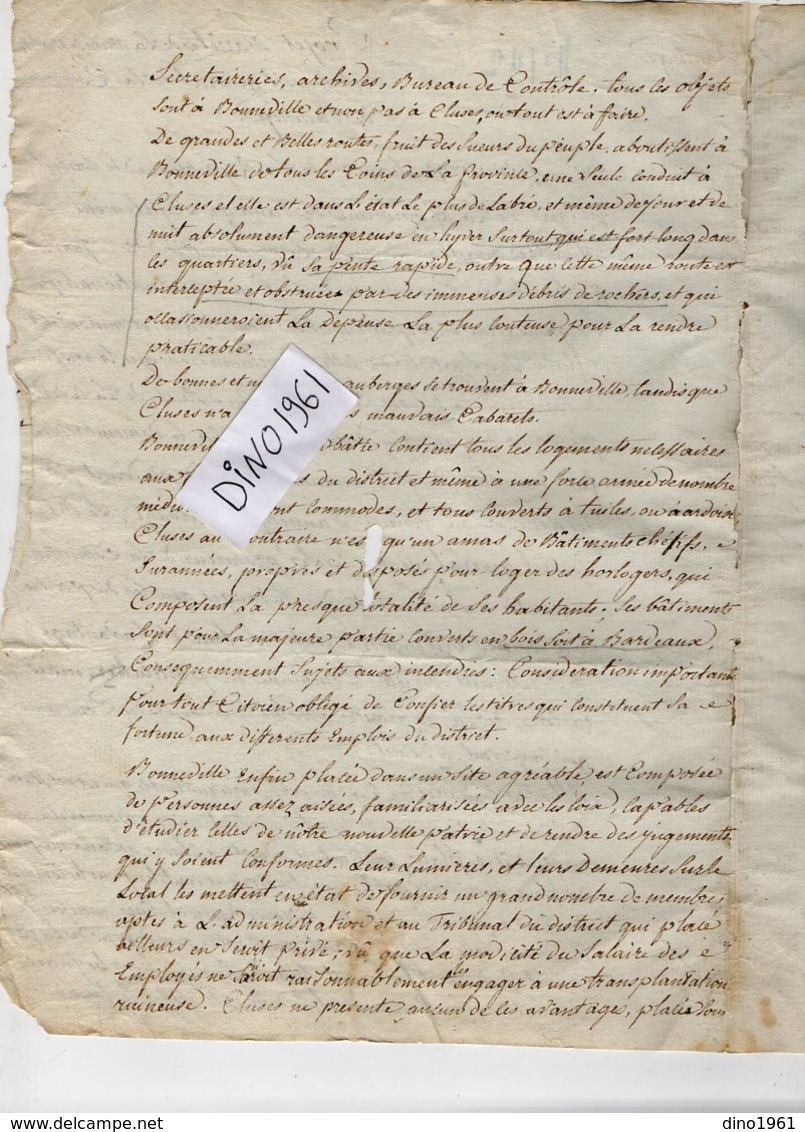 Secretaireries, archives, Bureau de Contrôle. tous les objets
sont à Bonneville et non pas à Cluses, ou tout est à faire.
De grandes et Belles routes, fruit des sueurs du peuple, aboutissent à
Bonneville de tous les Coins de La province, une seule conduit à
Cluses et elle est dans L'état Le plus delabré, et même de jour et de
nuit absolument dangereuse en hyver surtout qui est fort long dans
les quartiers, vû sa pente rapide, outre que cette même route est
interceptée et obstruée par des immenses débris de rochers, et qui
occasionneroient La Depense La plus couteuse pour La rendre
praticable.
De bonnes et auberges se trouvent à Bonneville, tandisque
Cluses n'a mauvais Cabarets.
bâtie contient tous les logements necessaires
aux du district et même à une force armée de nombre
commodes, et tous couverts à tuiles, ou à ardoise,
Cluses au Contraire n'est qu'un amas de Bâtiments chétifs, e
surannées, propres et disposés pour loger des horlogers, qui
Composent La presque totalité de ses habitants. ses bâtiments
sont pour La majeure partie couverts en bois soit à Bardeaux,
Consequemment sujets aux incendies: Consideration important
pour tout Citoien obligé de Confier les titres qui constituent sa e
fortune aux differents Emplois du district.
Bonneville Enfin placée dans un site agréable est Composée
de personnes assez aisées, familiarisées avec les loix, capables
d'étudier celles de nôtre nouvelle patrie et de rendre des jugements
qui y soient Conformes. Leur Lumieres, et leurs Demeures sur le
Local les mettent en état de fournir un grand nombre de membres
aptes à L'administration et au Tribunal du district qui placé
ailleurs en seroit privé; vû que La modicité du salaire des e
Employés ne sauroit raisonnablement les engager à une transplantation
ruineuse. Cluses ne presente aucun de ces avantage, placée sous
DINO1961
dino1961